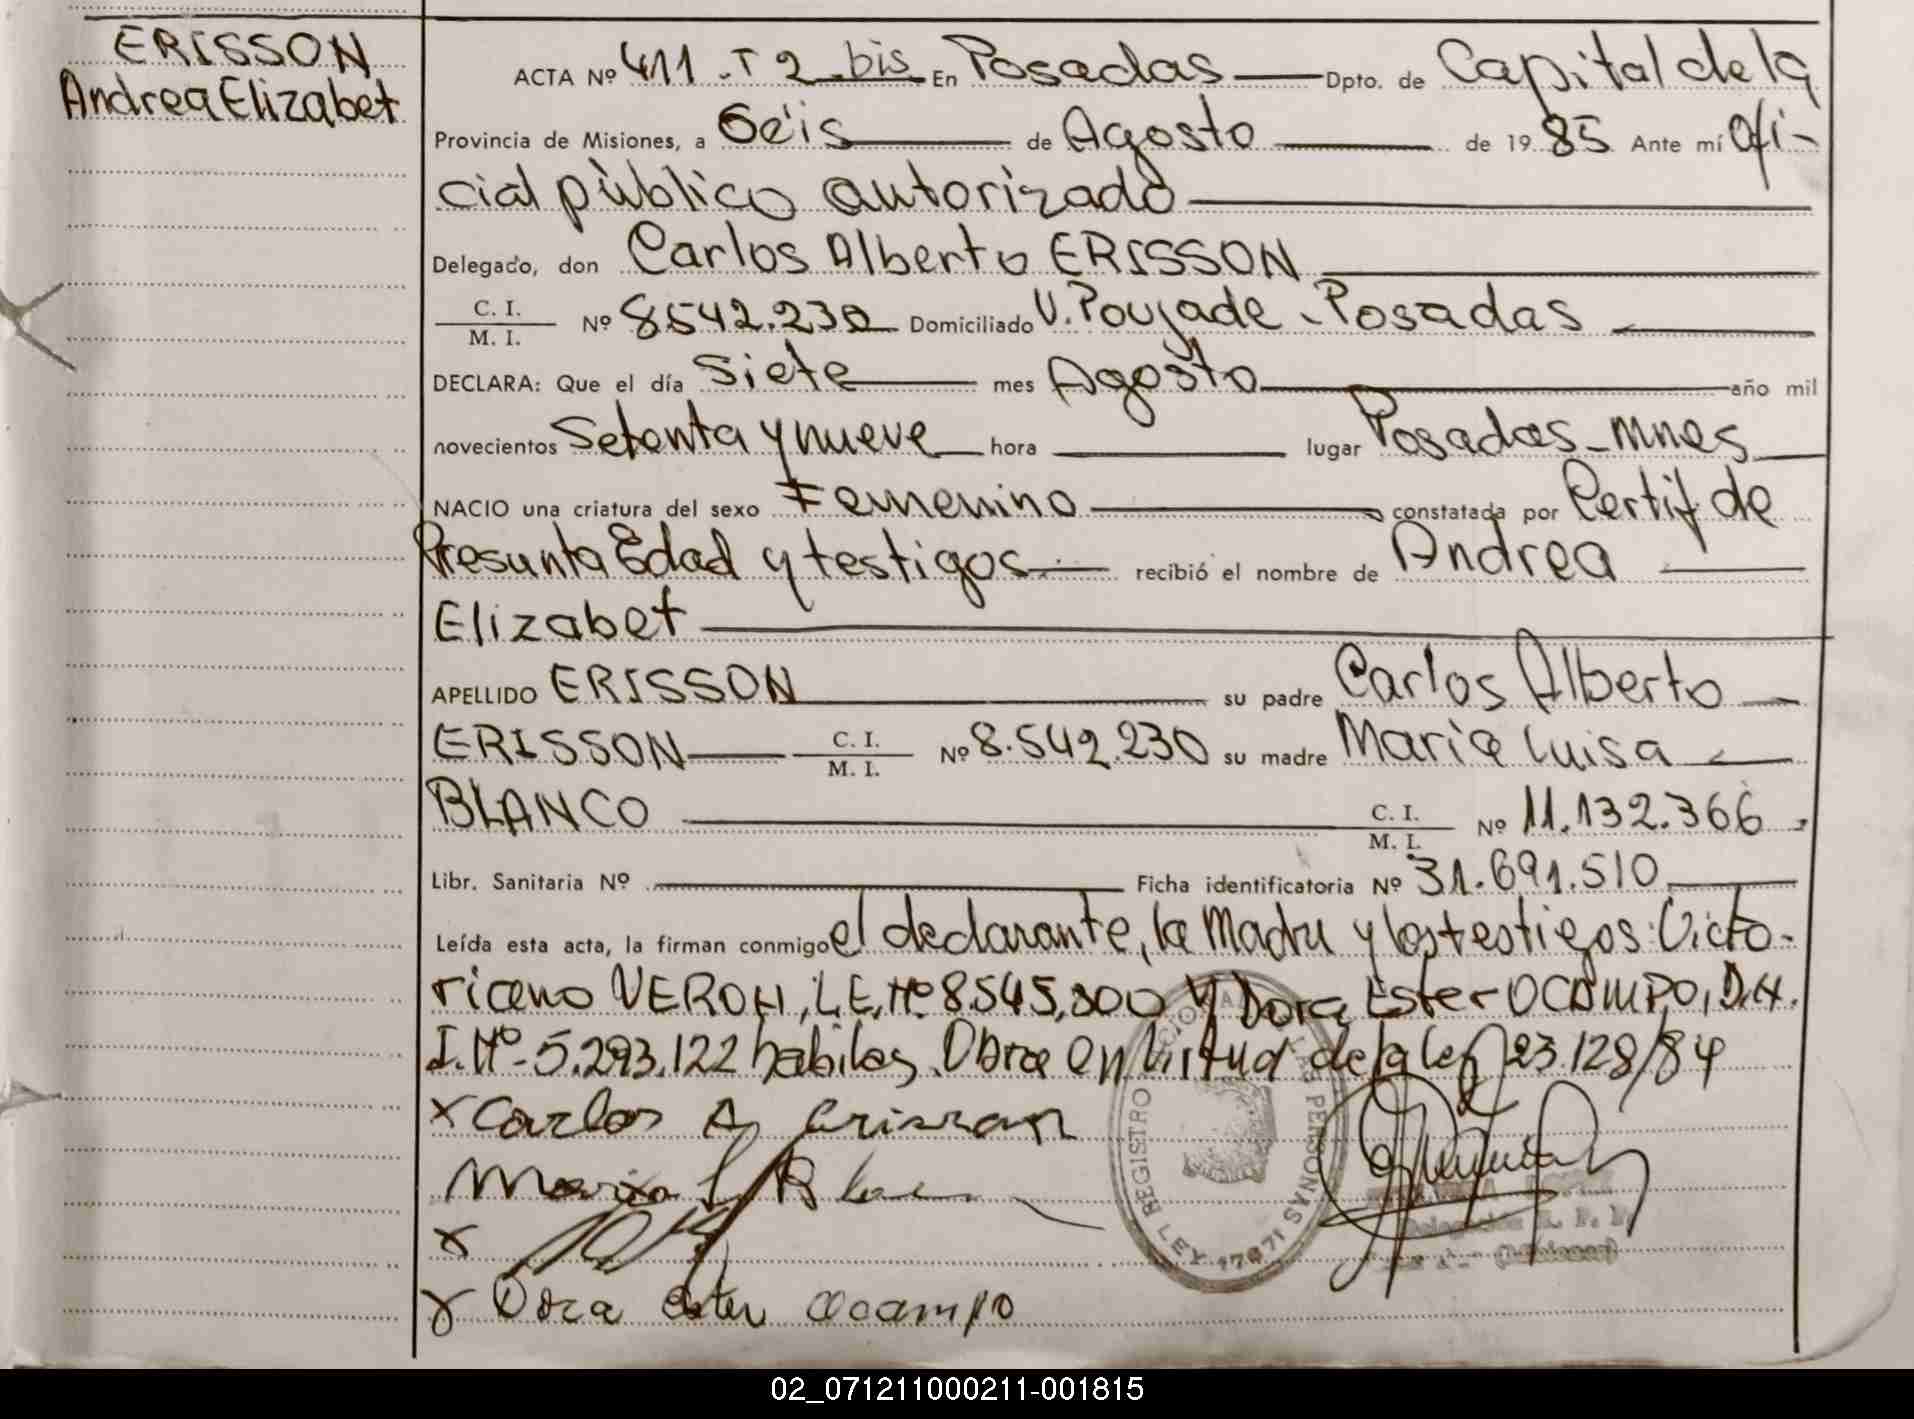 ERISSON
Andrea Elizabet
ACTA Nº 411 - T 2 bis En Posadas Dpto. de Capital de la
Provincia de Misiones, a Séis de Agosto de 1985 Ante mí Ofi-
cial pùblico autorizado
Delegado, don Carlos Alberto ERISSON
C. I. / M. I. Nº 8.542.230 Domiciliado V. Poujade - Posadas
DECLARA: Que el día Siete mes Agosto año mil
novecientos Setenta y nueve hora lugar Posadas - Mnes
NACIO una criatura del sexo Femenino constatada por Certif de
Presunta Edad y testigos recibió el nombre de Andrea
Elizabet
APELLIDO ERISSON su padre Carlos Alberto
ERISSON C. I. / M. I. Nº 8.542.230 su madre Maria Luisa
BLANCO C. I. / M. I. Nº 11.132.366
Libr. Sanitaria Nº Ficha identificatoria Nº 31.691.510
Leída esta acta, la firman conmigo el declarante, la Madre y los testigos: Victo-
riano VERON, L.E. Nº 8.545.300 y Dora Ester OCAMPO, D.N.
I. Nº 5.293.122 habiles. Obra en virtud de la ley 23.128/84
x Carlos A Erisson
Maria L Blanco
x
x Dora Ester Ocampo
REGISTRO LAS PERSONAS
LEY 17671
02_071211000211-001815